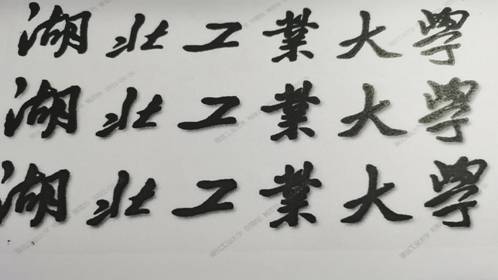 湖北工業大學
湖北工業大學
湖北工業大學